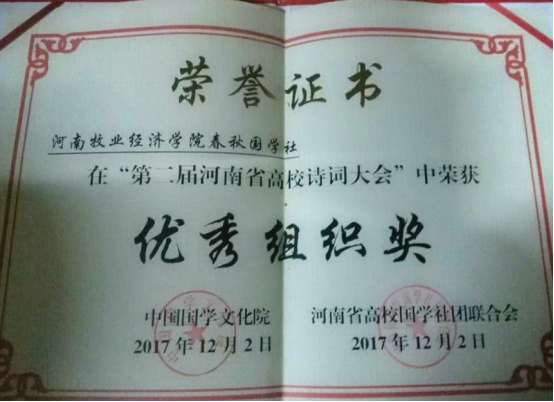 荣誉证书
河南牧业经济学院春秋国学社
在“第二届河南省高校诗词大会”中荣获
优秀组织奖
中国国学文化院
2017年12月2日
河南省高校国学社团联合会
2017年12月2日